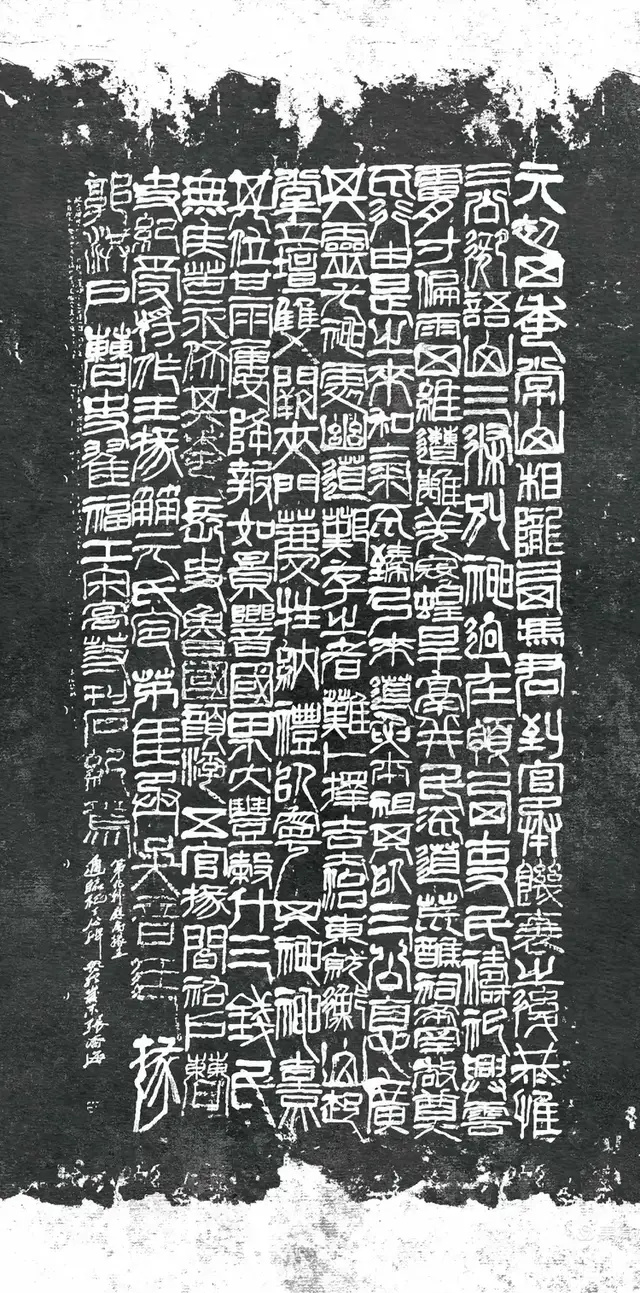 元初四年常山相隴西馮君到官承饑衰之後恭惟
三公御語山三條別神迥在領西吏民禱祀興雲
膚寸偏雨四維遭離羌寇蝗旱鬲并民流道荒醮祠希罕敬奠
不行由是之來和氣不臻乃求道要本祖其原以三公德廣
其靈尤神處幽道艱存之者難卜擇吉土治東就衡山起
堂立壇雙闕夾門薦牲納禮以寧其神神熹
其位甘雨屢降報如景響國界大豐穀斗三錢民
無疾苦永保其年長史魯國顏浮五官掾閻祐戶曹
史紀受將作王掾元氏令茅匡丞吳音廷掾
郭洪戶曹史翟福工宋高等刊石紀焉